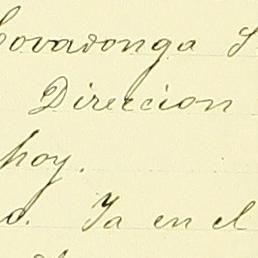 Covadonga S
Direccion
hoy.
o. Ya en el